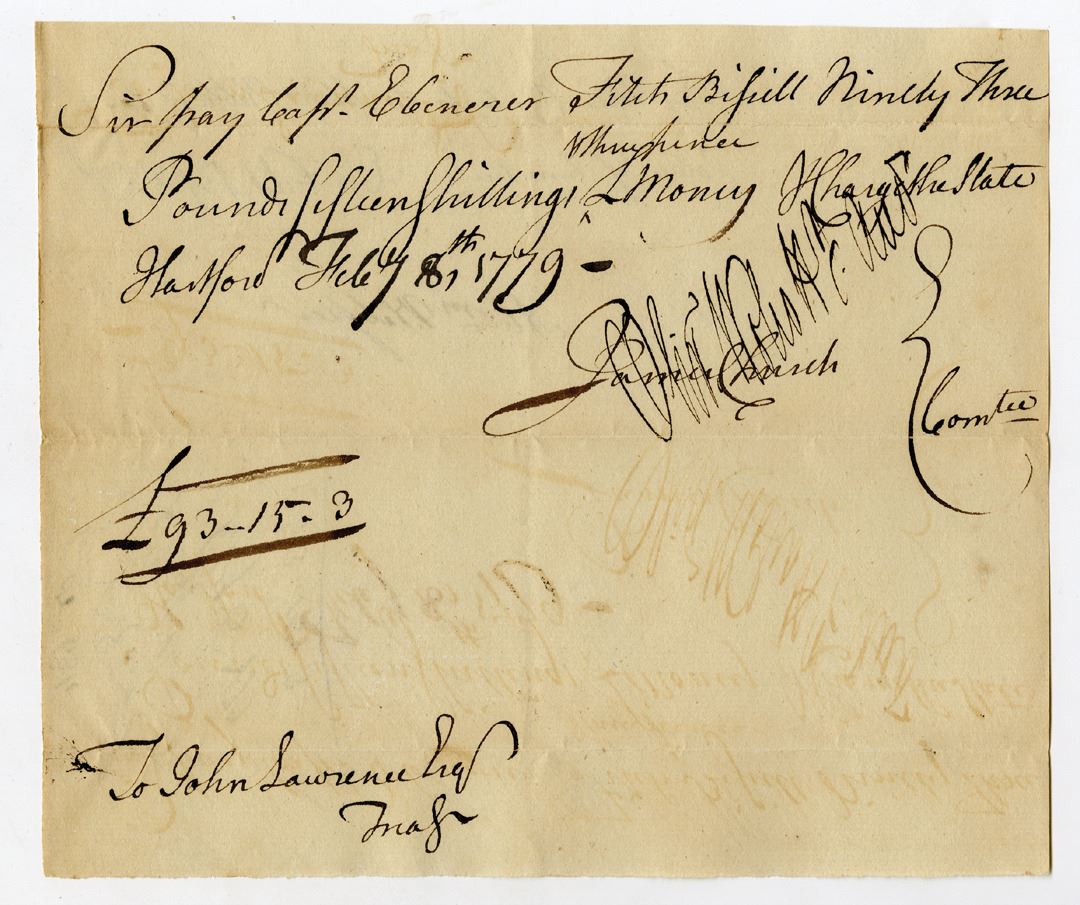 Sir pay Capt. Ebenezer Fitch Bissell Ninety Three
Pounds fifteen Shillings & three pence L Money & Charge the State
Hartford Feby 8th 1779 -
James Church
Comtee
£93-15-3
To John Lawrence Esqr
Treasr